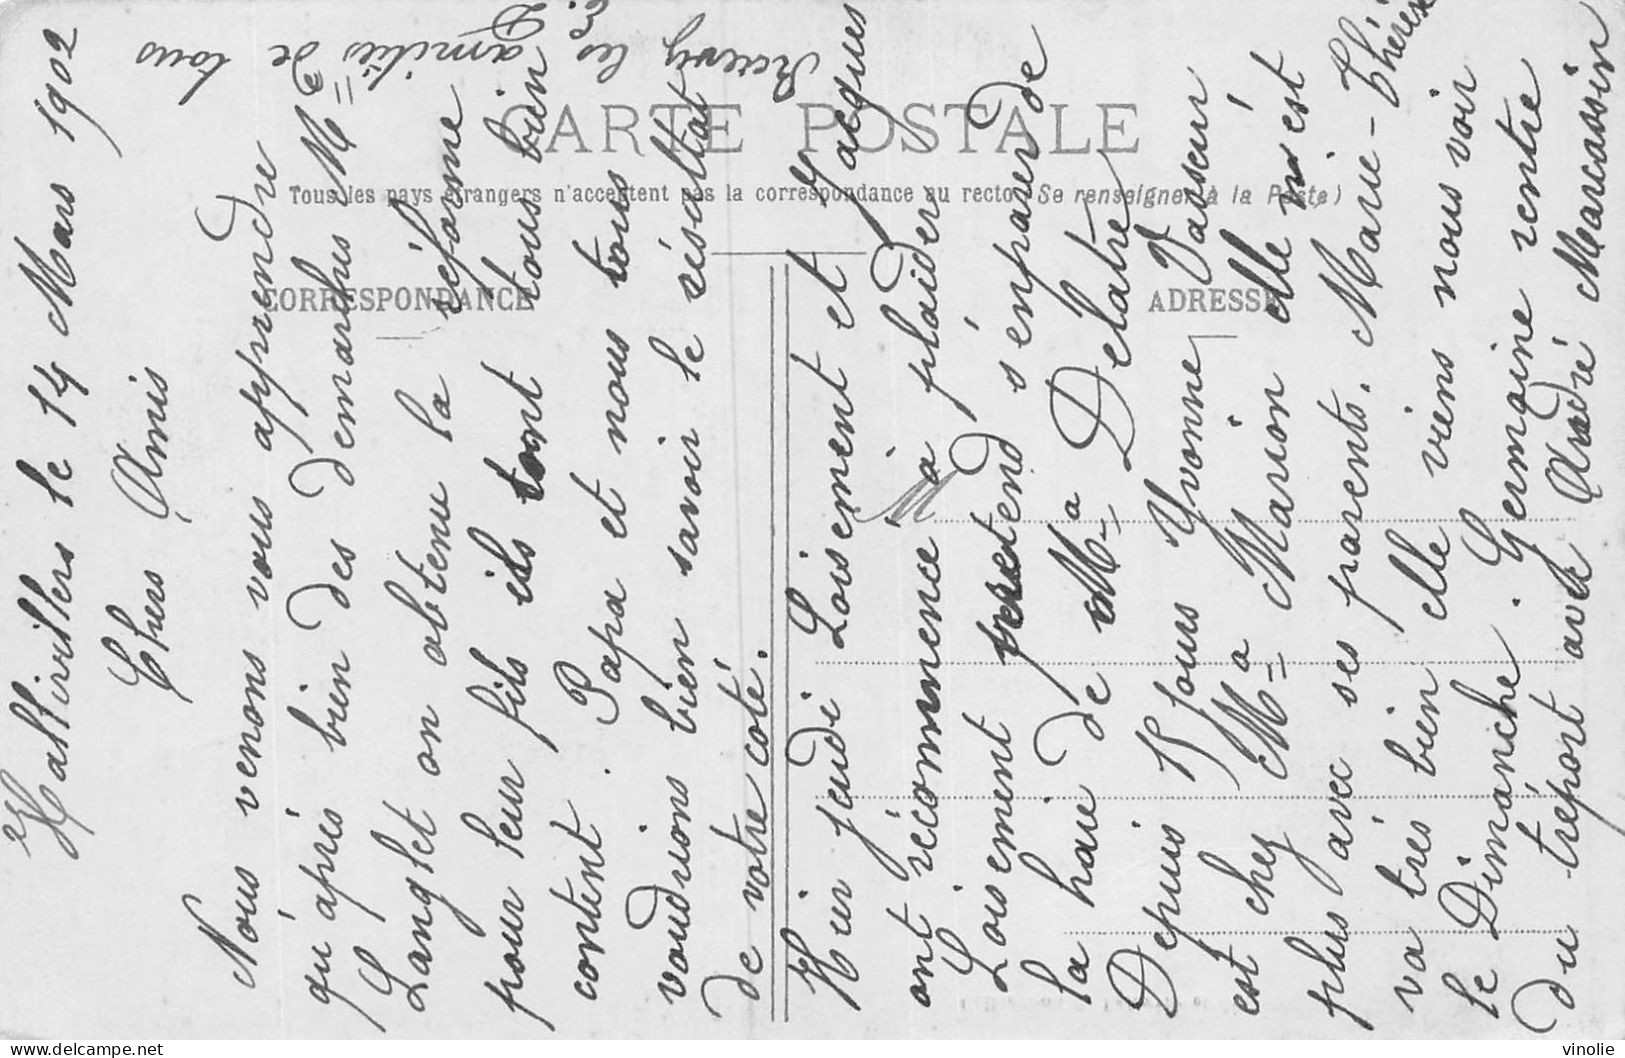 Hattivillers le 14 Mars 1902
Chers Amis
Nous venons vous apprendre
qu'après bien des demarhes Mme
Langlet on obtenu la réforme
pour leur fils ils sont tous bien
content. Papa et nous tous
voudrions bien savoir le résultat
de votre coté.
Hier jeudi Loisement et Jacques
ont récommencé a plaider
Loisement pretend s'emparer de
la haie de Ma Delatre
Depuis 15 jours Yvonne Vasseur
est chez Ma Marion elle n'est
plus avec ses parents. Marie-Thérèse
va très bien elle viens nous voir
le Dimanche. Germaine rentre
du tréport avec André Marcassin
Recevez les amitiés de tous
CARTE POSTALE
Tous les pays étrangers n'acceptent pas la correspondance au recto (Se renseigner à la Poste)
CORRESPONDANCE
ADRESSE
M
delcampe.net
vinolie